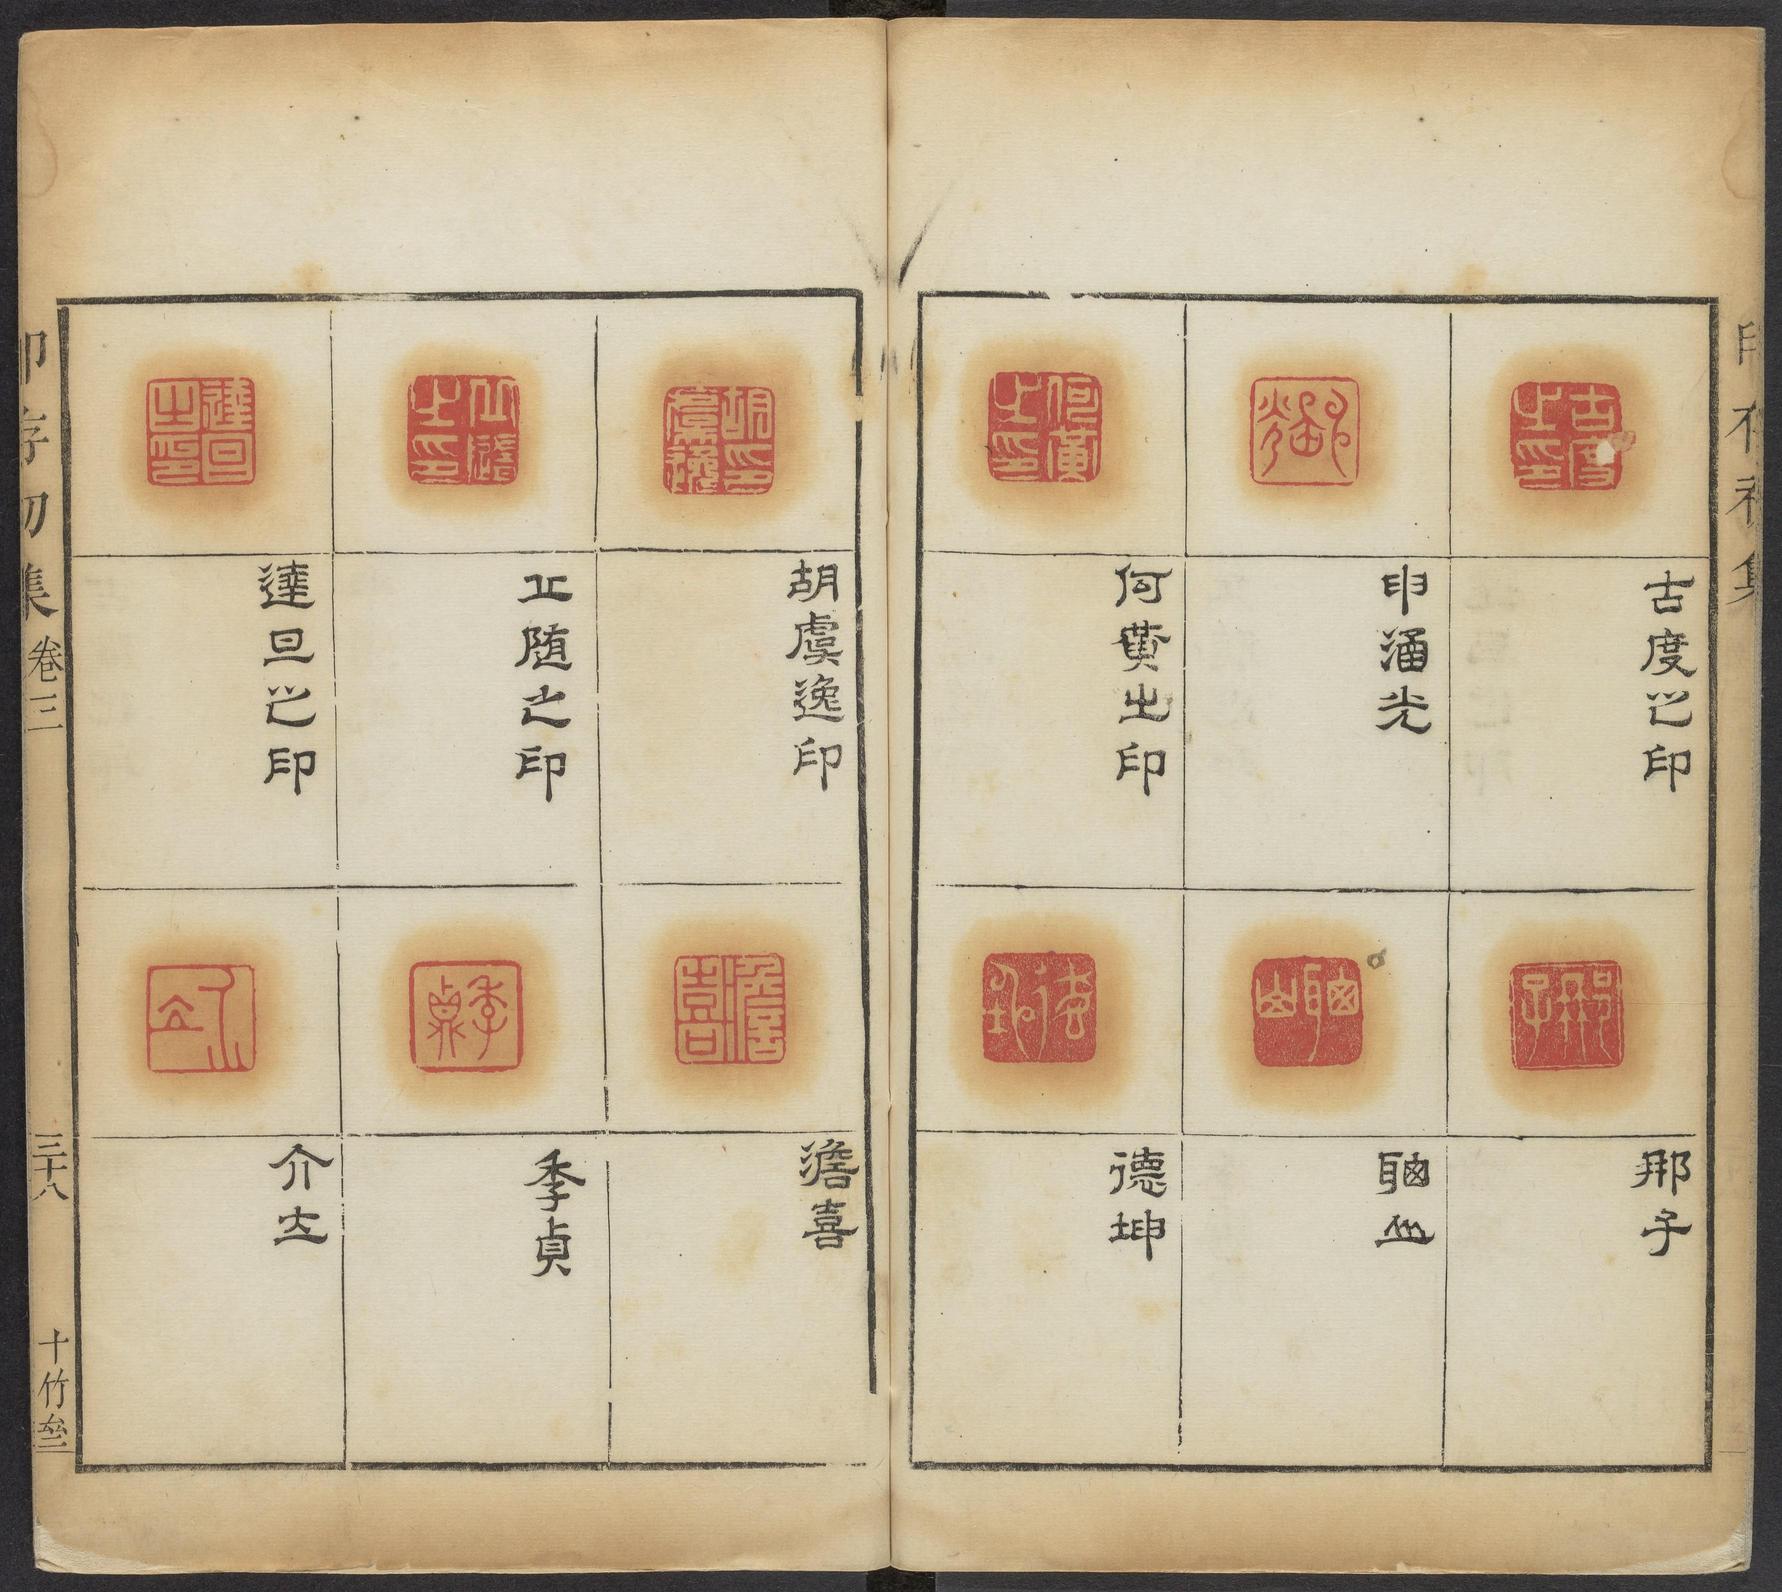 古度之印
申涵光
何黄之印
那子
聰山
德坤
胡虞逸印
丘隨之印
達旦之印
澹喜
季貞
介立
印存初集
卷三
三十八
十竹
印存初集